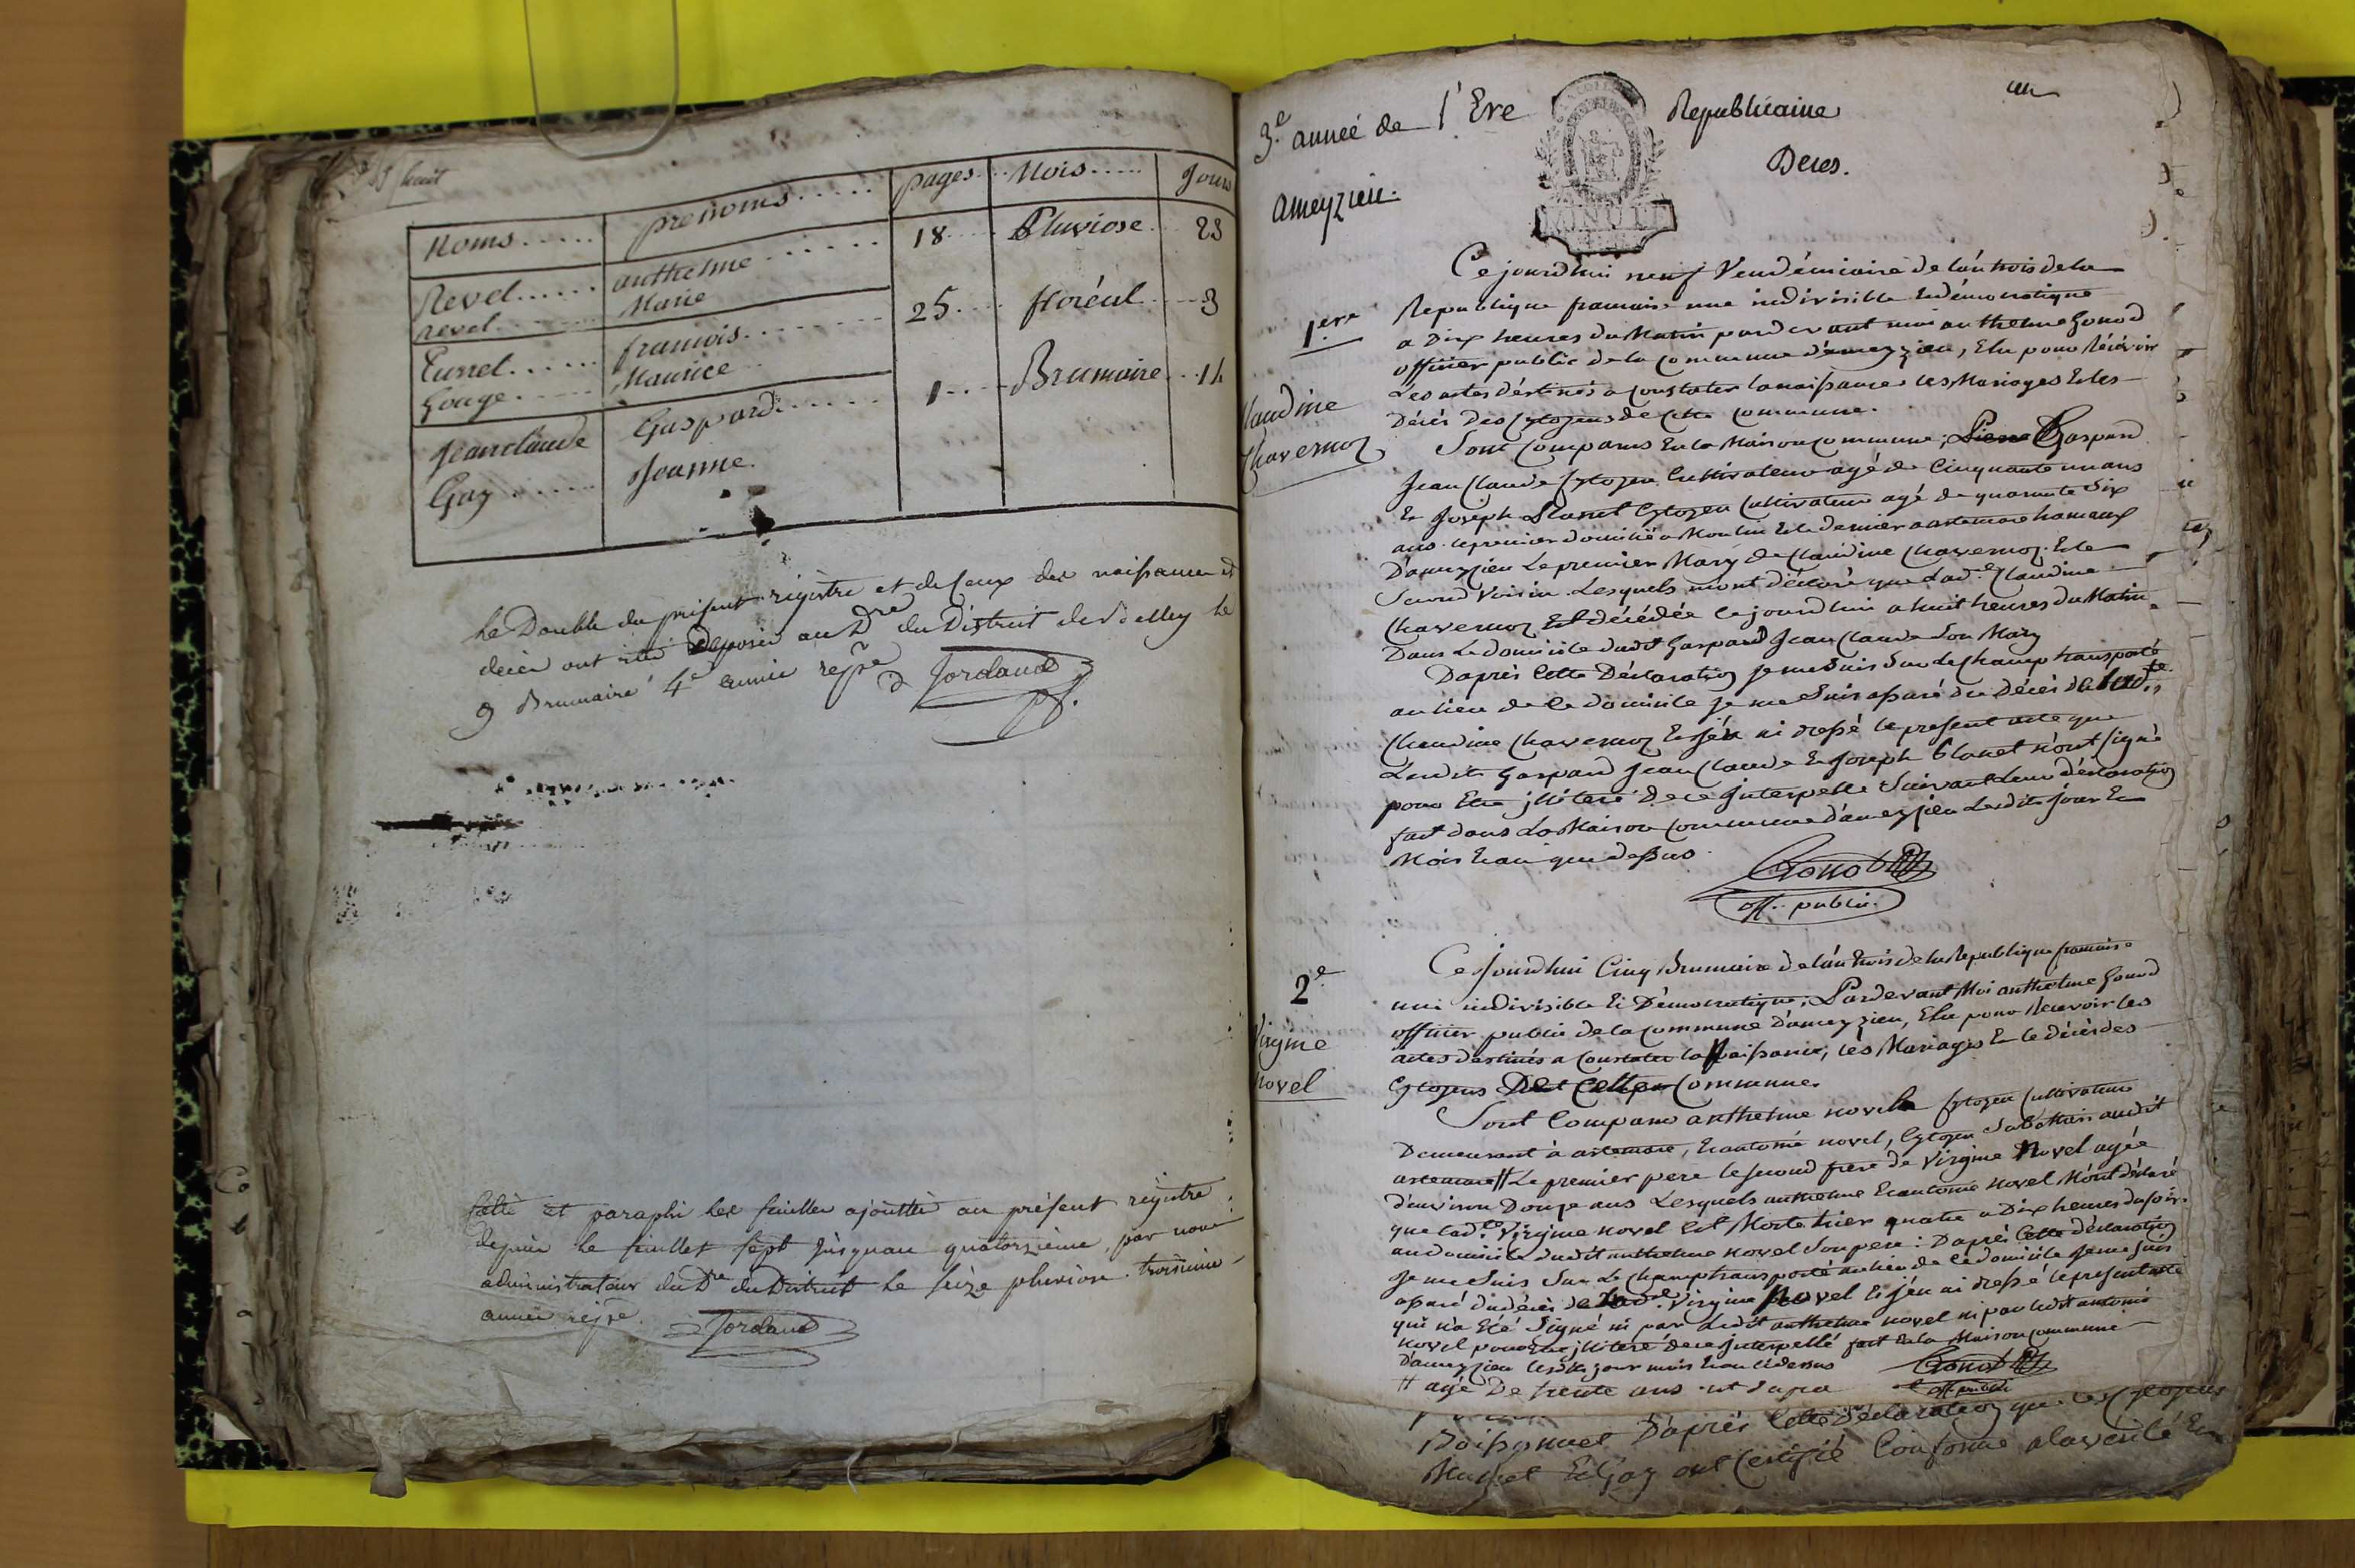 huit
Noms...... prenoms...... pages... Mois..... Jours
Revel...... anthelme...... 18.... Pluviose. 23
revel....... Marie
Tunrel...... francois........ 25.... floréal.... 3
Gouge...... Maurice
Jeanclaude Gaspard...... 1.... Brumaire... 14
Goy...... Jeanne.
Le Double du présent régistre et de ceux des naissances et
décès ont été déposés au Dre du District de Belley le
9 Brumaire 4e année
Jordand
Cotté et paraphé les feuilles ajoutté au présent régistre
depuis le feuillet sept jusquau quatorzieme, par nous
administrateur du Dre du District le seize pluviose troisieme
année
Jordand
3e année de l'Ere Republicaine
Deces.
ameyzieu.
MINUTE
1ere
Claudine
Chavernoz
Ce jourdhui neuf Vendémiaire de lan trois de la
Republique francaise une indivisible Et démocratique
a Dix heures du Matin pardevant moi anthelme Gonod
officier public de la commune d'ameyzieu, Elu pour Récévoir
Les actes déstinés a constater la naissance les Mariages Et les
Décés Des Cytoyens de Cette Commune.
Sont comparus En la Maison commune, Gaspard
Jean Claude Cytoyen Cultivateur agé de Cinquante un ans
Et Joseph Blanet Cytoyen Cultivateur agé de quarante Six
ans. le premier domicilié a Moulin Et le dernier a artemare hameaux
D'ameyzieu Le premier Mary de Claudine Chavernoz. Et le
Second Voisin. Lesquels mont déclaré que lad.e Claudine
Chavernoz Est décédée cejourdhui a huit heures du Matin
Dans Le domicile dudit Gaspard Jean Claude Son Mary
Daprès Cette Déclaration je me Suis Sur Le Champ transporté
au lieu de Ce domicile je me Suis assuré du Décés de lad.te
Claudine Chavernoz Et jén ai dressé le present acte que
Lesdits Gaspard Jean Claude Et Joseph Blanet n'ont signé
pour Etre jlliteré De ce jnterpellé Suivant Leur déclaration
fait dans La Maison commune d'ameyzieu Lesdits jour Et
Mois Et an que dessus.
Gonod
off. public.
2e
Virgine
Novel
Ce jourdhui Cinq Brumaire de lan trois de la Republique francaise
une indivisible Et Démocratique; Pardevant Moi anthelme Gonod
officier public de la commune D'ameyzieu, Elu pour Recevoir les
actes destinés a Constater la Naissance, les Mariages Et le décès des
Cytoyens De Cette Commune.
Sont Comparus anthelme novel Cytoyen Cultivateur
Demeurant à artemare, Et antoine novel, Cytoyen Sabottier audit
artemare # Le premier pere le second frere de Virgine Novel agée
d'environ Douze ans Lesquels anthelme Et antoine novel M'ont déclaré
que lad.te Virgine novel Est Morte hier quatre a Dix heures du soir.
au domicile dudit anthelme novel Son pere: Daprès Cette déclaration
Je me Suis Sur Le Champ transporté au lieu de Ce domicile je me suis
assuré du décès de lad.e Virgine Novel Et jén ai dressé le present acte
qui n'a Eté Signé ni par Ledit anthelme novel ni par ledit antoine
novel pour Etre jlliteré de ce jnterpellé fait En la Maison commune
D'ameyzieu lesdits jour mois Et an cidessus
# agé De trente ans
Gonod
off. public
D'après Cette Déclaration que les Cytoyens
Et Goy ont Certifié Conforme a la vérité Et